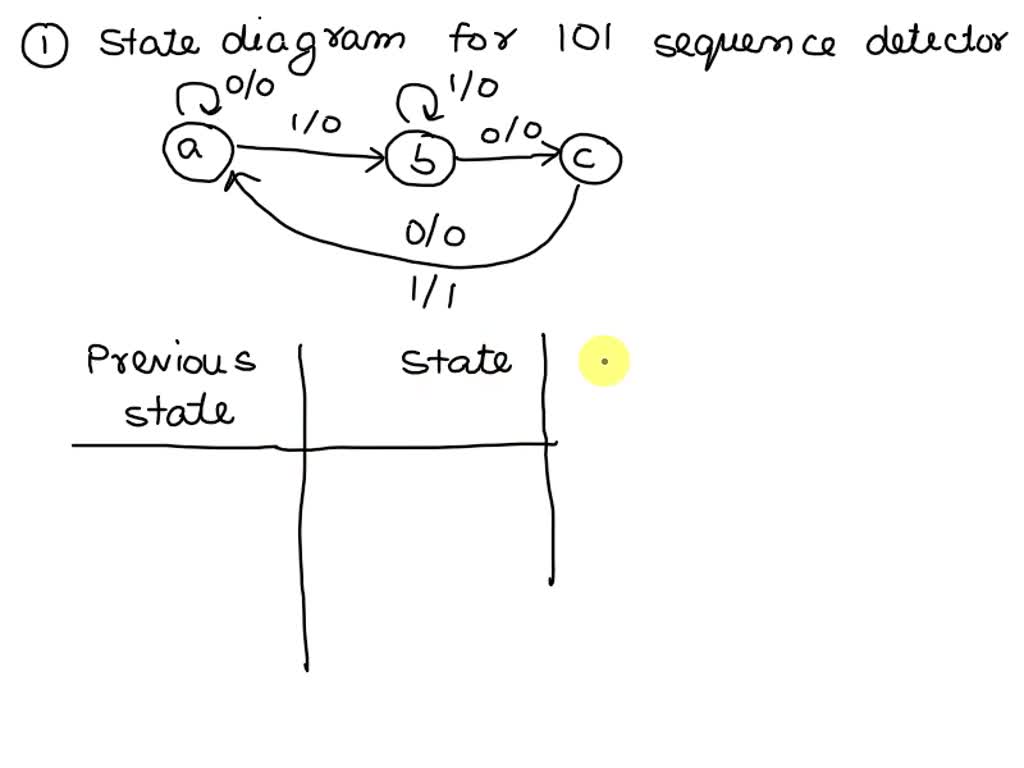 ① State diagram for 101 sequence detector
0/0
1/0
1/0
0/0
a
b
c
0/0
1/1
Previous state
State